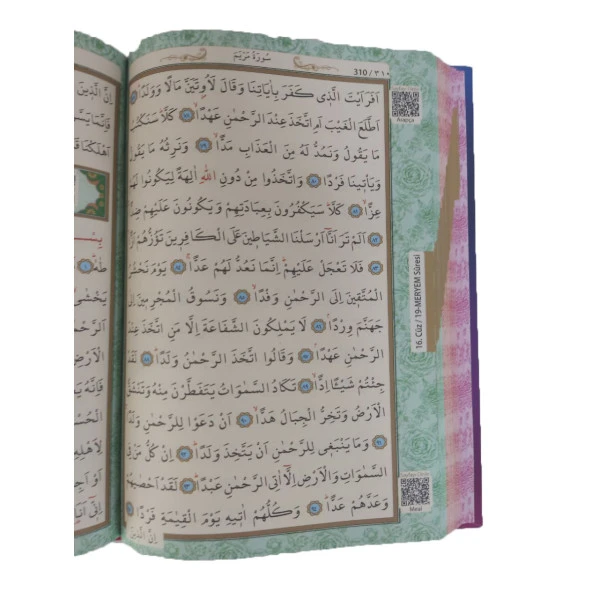 سُورَةُ مَرْيَمَ
310 / ٣١٠
اَفَرَاَيْتَ الَّذ۪ي كَفَرَ بِاٰيَاتِنَا وَقَالَ لَاُو۫تَيَنَّ مَالًا وَوَلَدًاۜ ﴿٧٧﴾
اَطَّلَعَ الْغَيْبَ اَمِ اتَّخَذَ عِنْدَ الرَّحْمٰنِ عَهْدًاۙ ﴿٧٨﴾ كَلَّاۜ سَنَكْتُبُ
مَا يَقُولُ وَنَمُدُّ لَهُ مِنَ الْعَذَابِ مَدًّاۙ ﴿٧٩﴾ وَنَرِثُهُ مَا يَقُولُ
وَيَأْت۪ينَا فَرْدًا ﴿٨٠﴾ وَاتَّخَذُوا مِنْ دُونِ اللّٰهِ اٰلِهَةً لِيَكُونُوا لَهُمْ
عِزًّاۙ ﴿٨١﴾ كَلَّاۜ سَيَكْفُرُونَ بِعِبَادَتِهِمْ وَيَكُونُونَ عَلَيْهِمْ ضِدًّا۟
﴿٨٢﴾ اَلَمْ تَرَ اَنَّٓا اَرْسَلْنَا الشَّيَاط۪ينَ عَلَى الْكَافِر۪ينَ تَؤُزُّهُمْ اَزًّاۙ
﴿٨٣﴾ فَلَا تَعْجَلْ عَلَيْهِمْۜ اِنَّمَا نَعُدُّ لَهُمْ عَدًّاۚ ﴿٨٤﴾ يَوْمَ نَحْشُرُ
الْمُتَّق۪ينَ اِلَى الرَّحْمٰنِ وَفْدًاۙ ﴿٨٥﴾ وَنَسُوقُ الْمُجْرِم۪ينَ اِلٰى
جَهَنَّمَ وِرْدًاۢ ﴿٨٦﴾ لَا يَمْلِكُونَ الشَّفَاعَةَ اِلَّا مَنِ اتَّخَذَ عِنْدَ
الرَّحْمٰنِ عَهْدًاۢ ﴿٨٧﴾ وَقَالُوا اتَّخَذَ الرَّحْمٰنُ وَلَدًاۜ ﴿٨٨﴾ لَقَدْ
جِئْتُمْ شَيْـًٔا اِدًّاۙ ﴿٨٩﴾ تَكَادُ السَّمٰوَاتُ يَتَفَطَّرْنَ مِنْهُ وَتَنْشَقُّ
الْاَرْضُ وَتَخِرُّ الْجِبَالُ هَدًّاۙ ﴿٩٠﴾ اَنْ دَعَوْا لِلرَّحْمٰنِ وَلَدًاۚ
﴿٩١﴾ وَمَا يَنْبَغ۪ي لِلرَّحْمٰنِ اَنْ يَتَّخِذَ وَلَدًاۜ ﴿٩٢﴾ اِنْ كُلُّ مَنْ فِي
السَّمٰوَاتِ وَالْاَرْضِ اِلَّٓا اٰتِي الرَّحْمٰنِ عَبْدًاۜ ﴿٩٣﴾ لَقَدْ اَحْصٰيهُمْ
وَعَدَّهُمْ عَدًّاۜ ﴿٩٤﴾ وَكُلُّهُمْ اٰت۪يهِ يَوْمَ الْقِيٰمَةِ فَرْدًا ﴿٩٥﴾
اِنَّ الَّذ۪ينَ
Arapça
16. Cüz / 19-MERYEM Sûresi
Meal
اِنَّ الَّذ۪ينَ